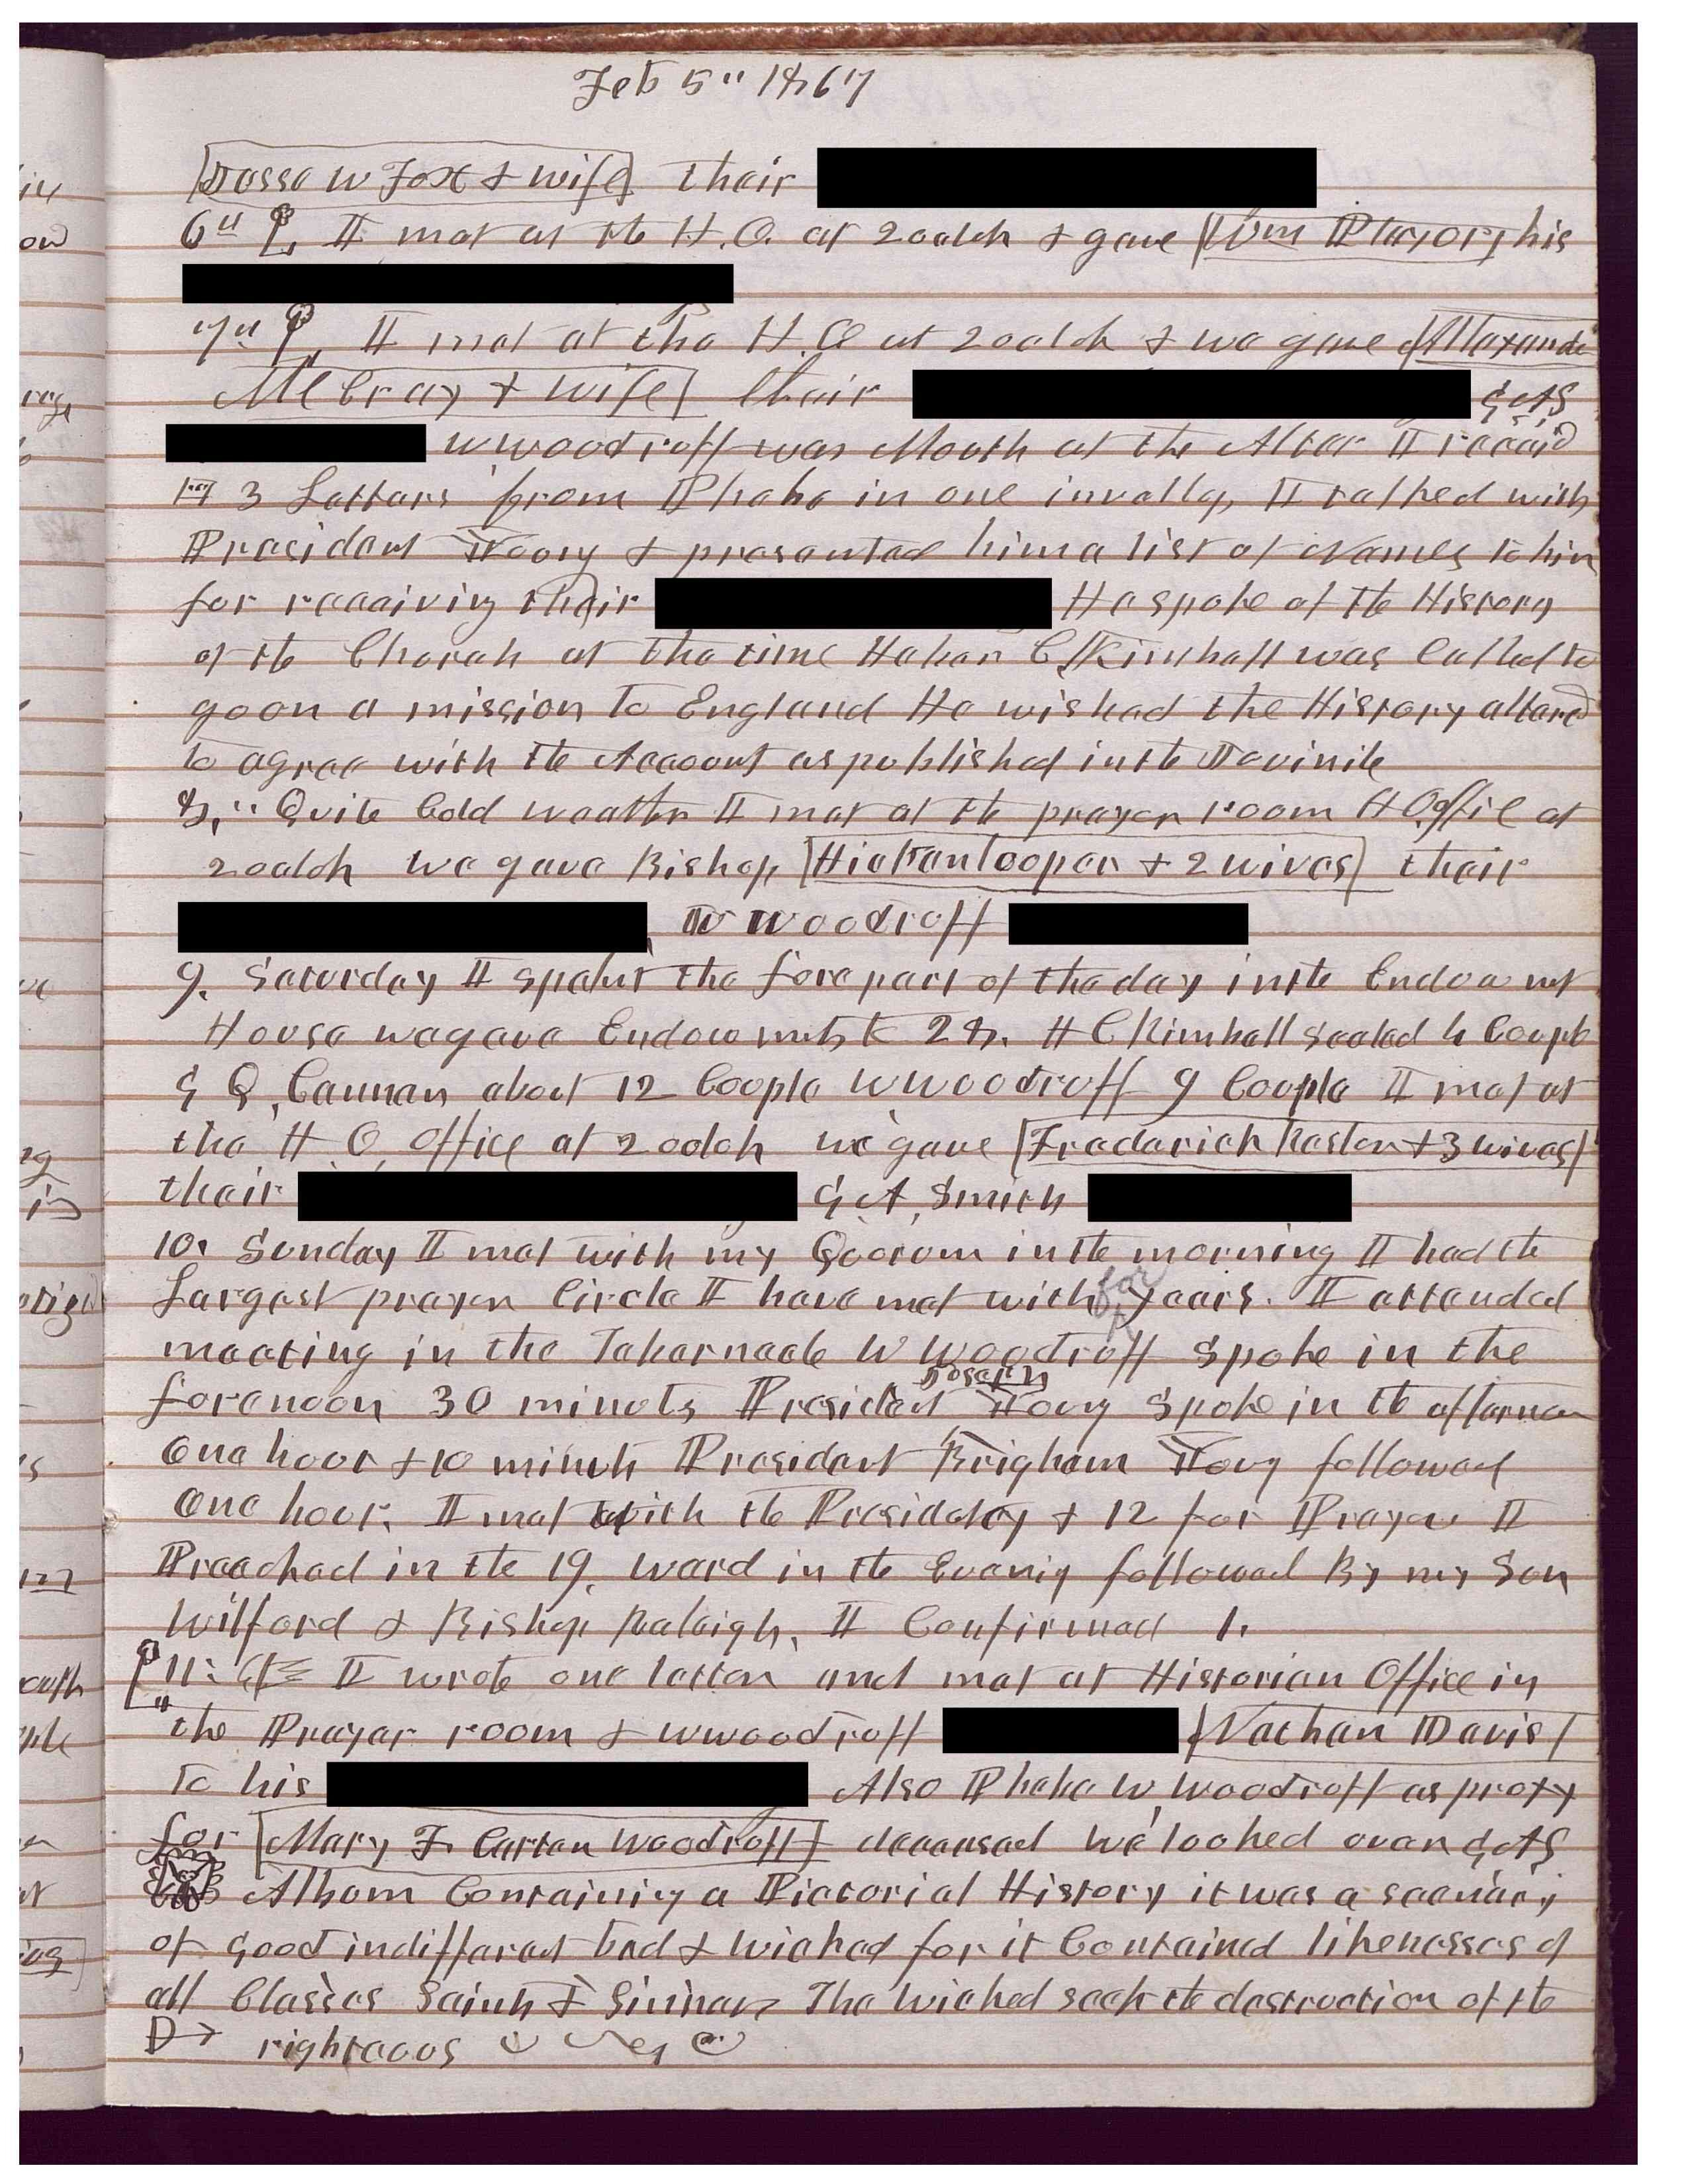 Feb 5" 1867
Jesse W Fox & wife their
6" I met at the H.O. at 2 oclok & gave Wm Player his
7" I met at the H.O at 2 oclok & we gave Allexande
McCray & wife their GAS
W Woodruff was Mouth at the Altar I receid
3 Letters from Phebe in one invellop, I talked with
President Young & presented him a list of Names to him
for receiving their He spoke of the History
of the Church at the time Heber C Kimball was Called to
go on a mission to England He wished the History altered
to agree with the Account as published in the
8," Quite Cold weather I met at the prayer room H Office at
2 oclok we gave Bishop Hickenlooper & 2 wives their
W Woodruff
9. Saturday I spent the fore part of the day in the Endowmt
House we gave Endowmets to 28. H C Kimball sealed 4 Coupl
G Q, Cannan about 12 Couple W Woodruff 9 Couple I met at
the H. O, Office at 2 oclok we gave Frederick Kesler & 3 wives
their G A, Smith
10. Sunday I met with my Quorum in the morning I had the
Largest prayer Circle I have met with for years. I attended
meeting in the Tabernacle W Woodruff Spoke in the
Joseph
forenoon 30 minuts President Young Spoke in the afternoon
One hour & 10 minuts President Brigham Young followed
One hour. I met with the Presidency & 12 for Prayer I
Preached in the 19. ward in the Evenig followed By my Son
Wilford & Bishop Raleigh. I Confirmed 1.
11: I wrote one letter and met at Historian Office in
the Prayer room & W Woodruff Nathan Davis
To his Also Phebe W, Woodruff as proxy
for Mary F. Carter Woodruff deceased We looked over GAS
Album Containing a Pictorial History it was a scenery
of good indifferet bad & wicked for it Contained likenesses of
all Classes Saints & Sinners The wicked seek the destruction of the
righteous